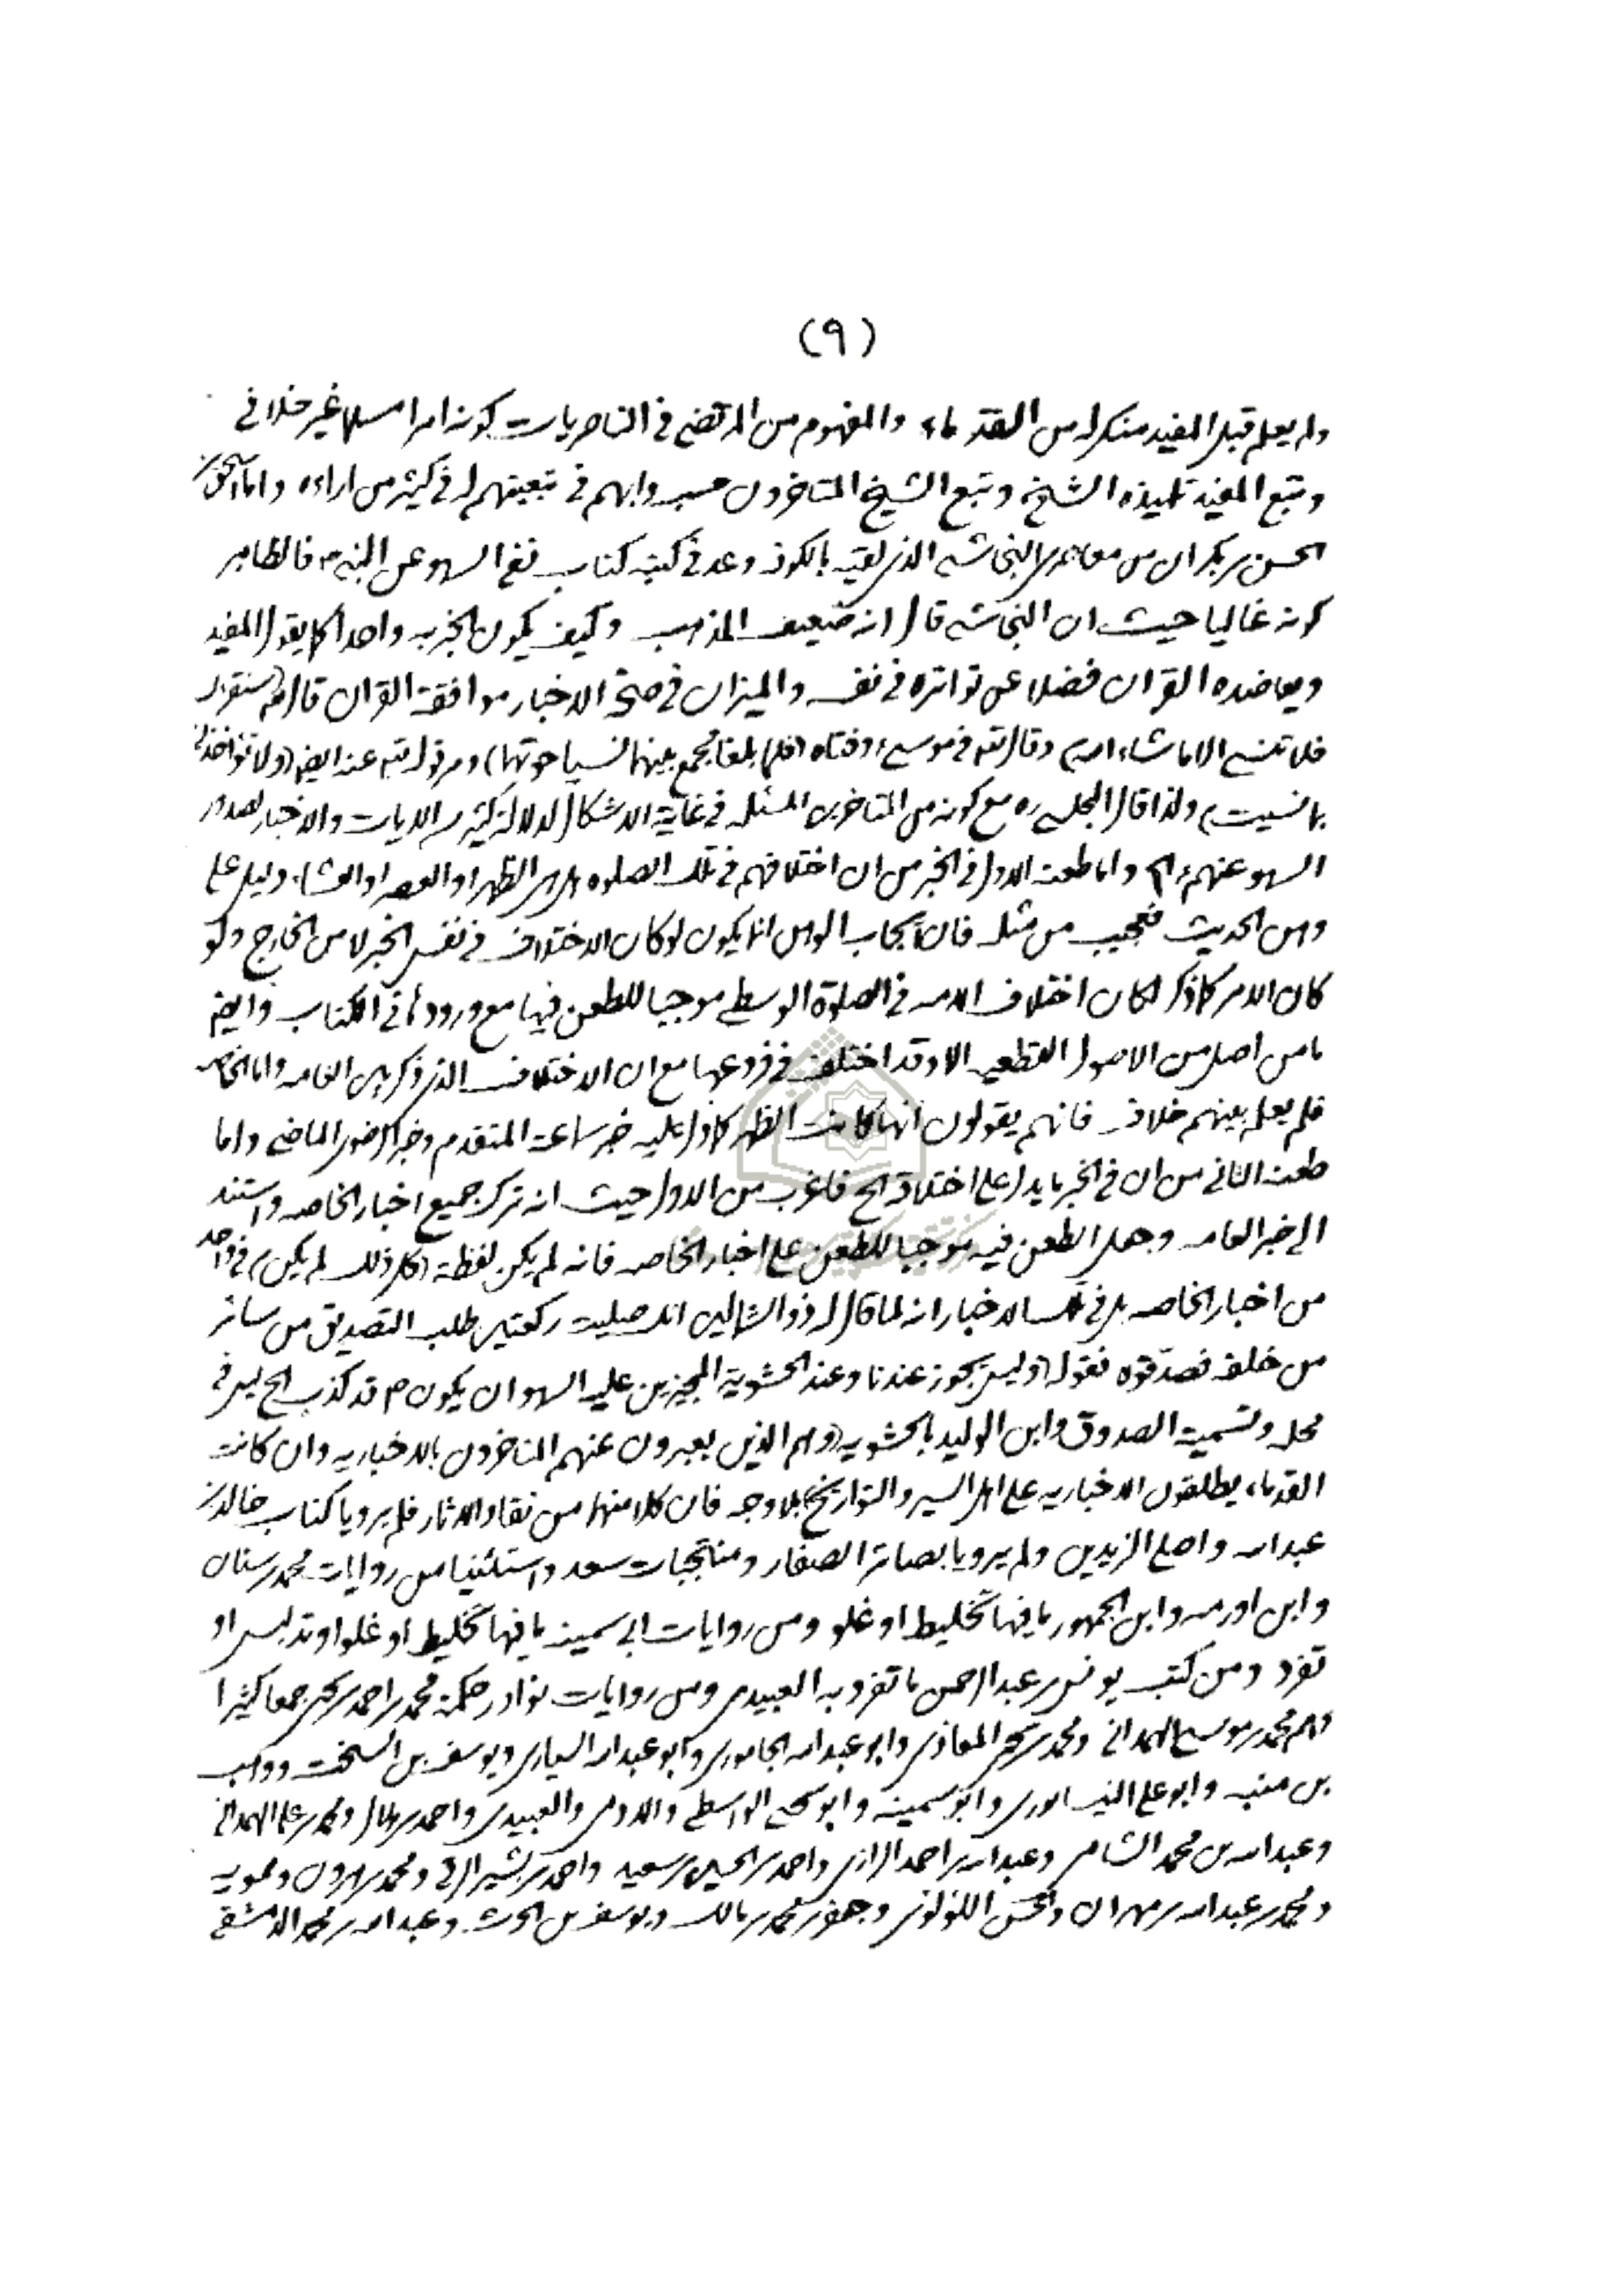 (٩)
ولم يعلم قبل المفيد منكر له من القدماء والمفهوم من المرتضى في الناصريات كونه امرا مسلما غير خلافي
وتبع المفيد تلميذه الشيخ وتبع الشيخ المتاخرون حسب دابهم في تبعيتهم له في كثير من اراءه واما اسحق بن
الحسن بن بكران من معاصري النجاشي الذي لقيه بالكوفة وعد في كتبه كتاب نفي السهو عن النبي ص فالظاهر
كونه غاليا حيث ان النجاشي قال انه ضعيف المذهب وكيف يكون الخبر به واحدا كما يقول المفيد
ويعاضده القران فضلا عن تواتره في نفسه والميزان في صحة الاخبار موافقة القران قال تعالى (سنقرئك
فلا تنسى الا ما شاء الله) وقال تعالى في موسى وفتاه (فلما بلغا مجمع بينهما نسيا حوتهما) ومر قوله تعالى عنه ايضا (ولا تؤاخذني
بما نسيت) ولذا قال المجلسي ره مع كونه من المتاخرين المسئلة في غاية الاشكال لدلالة كثير من الايات والاخبار لصدور
السهو عنهم ع الخ واما طعنه الاول في الخبر من ان اختلافهم في تلك الصلوه هل هي الظهر او العصر او العشاء دليل على
وهن الحديث فعجيب من مثله فان ايجاب الوهن انما يكون لو كان الاختلاف في نفس الخبر لا من الخارج ولو
كان الامر كما ذكر لكان اختلاف الامه في الصلوة الوسطى موجبا للطعن فيها مع ورودها في الكتاب وايضا
ما من اصل من الاصول القطعيه الا وقد اختلف في فروعها مع ان الاختلاف الذي ذكر بين العامه واما الخاصه
فلم يعلم بينهم خلاف فانهم يقولون انها كانت الظهر كما دل عليه خبر سماعة المتقدم وخبر الحضرمي الماضي واما
طعنه الثاني من ان في الخبر ما يدل على اختلاقه الخ فاغرب من الاول حيث انه ترك جميع اخبار الخاصه واستند
الى خبر العامه وجعل الطعن فيه موجبا للطعن على اخبار الخاصه فانه لم يكن لفظة (كل ذلك لم يكن) في واحد
من اخبار الخاصه بل في تلك الاخبار انه لما قال له ذو الشمالين انك صليت ركعتين طلب التصديق من سائر
من خلفه فصدقوه فقوله (وليس يجوز عندنا وعند الحشوية المجيزين عليه السهو ان يكون ص قد كذب الخ ليس في
محله وتسمية الصدوق وابن الوليد بالحشويه (وهم الذين يعبرون عنهم المتاخرون بالاخباريه وان كانت
القدماء يطلقون الاخباريه على اهل السير والتواريخ) بلا وجه فان كلا منهما من نقاد الاثار فلم يرويا كتاب خالد بن
عبد الله واصل الزيدين ولم يرويا بصائر الصفار ومنتخبات سعد واستثنيا من روايات محمد بن سنان
وابن اورمه وابن الجمهور ما فيها تخليط او غلو ومن روايات ابي سمينه ما فيها تخليط او غلو او تدليس او
تفرد ومن كتب يونس بن عبد الرحمن ما تفرد به العبيدي ومن روايات نوادر حكمة محمد بن احمد بن يحيى جمعا كثيرا
وهم محمد بن موسى الهمداني ومحمد بن يحيى المعاذي وابو عبد الله الجاموراني وابو عبد الله السياري ويوسف بن السخت ووهب
بن منبه وابو علي النيسابوري وابو سمينه وابو يحيى الواسطي والادمي والعبيدي واحمد بن هلال ومحمد بن علي الهمداني
وعبد الله بن محمد الشامي وعبد الله بن احمد الرازي واحمد بن الحسين بن سعيد واحمد بن بشير الرقي ومحمد بن هرون وممويه
ومحمد بن عبد الله بن مهران والحسن اللؤلؤي وجعفر بن محمد بن مالك ويوسف بن الحرث وعبد الله بن محمد الدمشقي